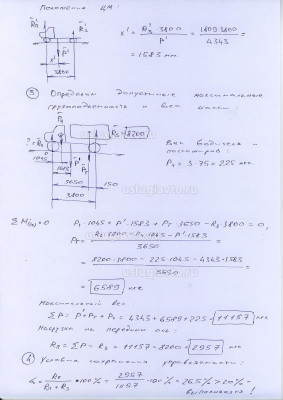 Положение ЦМ:
R̄п R̄з
x' P̄'
3800
x' = R'з · 3800 / P' = 1809 · 3800 / 4343 =
= 1583 мм.
③ Определим допустимые максимальные
грузоподъемность и вес шасси:
P̄ч
R̄з = 8200
1045
1583 P̄' P̄г
3650 150
3800
Вес водителя и
пассажиров:
Pч = 3 · 75 = 225 кгс.
uslugiavto.ru
ΣM(п) = 0 Pч · 1045 + P' · 1583 + Pг · 3650 - Rз · 3800 = 0,
Pг = Rз · 3800 - Pч · 1045 - P' · 1583 / 3650 =
= 8200 · 3800 - 225 · 1045 - 4343 · 1583 / 3650 =
= 6589 кгс
Максимальный вес
ΣP = P' + Pг + Pч = 4343 + 6589 + 225 = 11157 кгс
Нагрузка на переднюю ось:
Rп = ΣP - Rз = 11157 - 8200 = 2957 кгс
④ Условие сохранения управляемости:
= Rп / Rп + Rз · 100% = 2957 / 11157 · 100% = 26.5% > 20% -
выполняется!